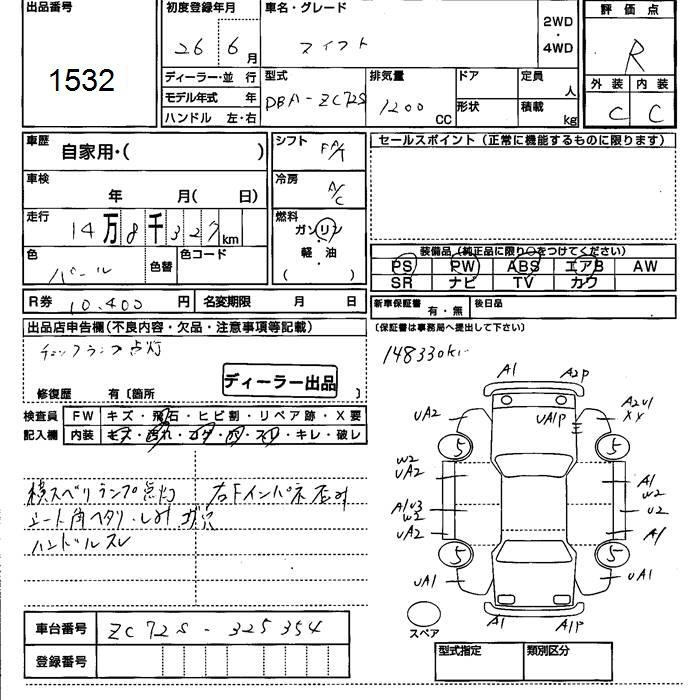 出品番号
1532
初度登録年月
26 6月
車名・グレード
スイフト
2WD
・
4WD
評価点
R
外装 内装
C C
ディーラー・並行
モデル年式 年
ハンドル 左・右
型式
DBA-ZC72S
排気量
1200 CC
ドア
形状
定員 人
積載 kg
車歴
自家用・( )
シフト
FA/T
車検
年 月( 日)
冷房
A/C
走行
14万8千327km
燃料
ガソリン
軽・油
( )
色
パール
色替
色コード
R券 10,400円
名変期限 月 日
セールスポイント(正常に機能するものに限ります)
装備品(純正品に限り○をつけてください)
PS PW ABS エアB AW
SR ナビ TV カワ
新車保証書 有・無
後日品
(保証書は事務局へ提出して下さい)
出品店申告欄(不良内容・欠品・注意事項等記載)
チェックランプ点灯
ディーラー出品
修復歴 有〔箇所 〕
検査員
記入欄
FW キズ・飛石・ヒビ割・リペア跡・X要
内装 キズ・汚れ・コゲ・穴・スレ・キレ・破レ
横スベリランプ点灯
シート角ヘタリ・しみ・コゲ穴
ハンドルスレ
右Fインパネ歪み
148330km
A1 A2P
UA2 UA1P A2U1
XX
5 5
W2
UA2
A1
W2
A1U3
W2
U2
UA2 A1
5 5
UA1 UA1
A1 A1P
スペア
車台番号 ZC72S-325354
登録番号
型式指定 類別区分